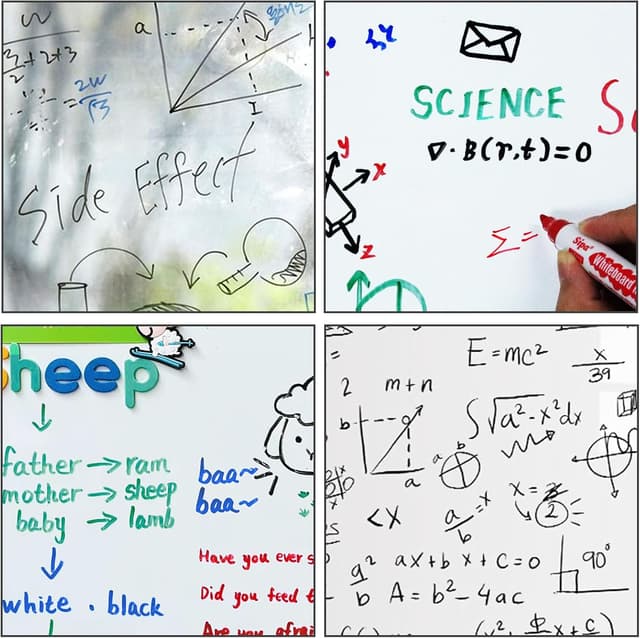 a
2W
√3
I
Side Effect
SCIENCE
∇·B(r,t)=0
y
x
z
Σ=
Sipa
Whiteboard
sheep
father → ram
mother → sheep
baby → lamb
white . black
baa~
baa~
Have you ever s
Did you feed t
Are you afrai
E=mc²
x
39
2 m+n
b
a
∫√a²-x²dx
a b
<x
a
b
=x
x=
2
a²
b
ax+bx+c=0
A=b²-4ac
90°